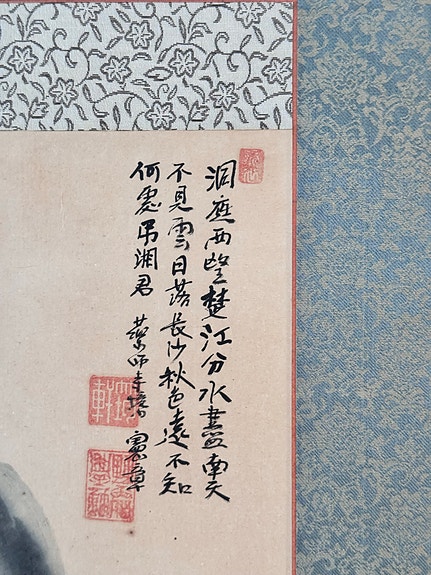 洞庭西望楚江分水盡南天
不見雲日落長沙秋色遠不知
何處吊湘君 薬師寺